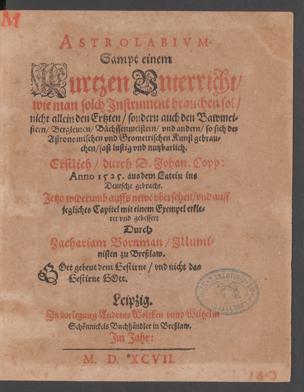 M
ASTROLABIVM.
Sampt einem
Kurtzen Vnterricht/
wie man solch Instrument brauchen sol/
nicht allein den Ertzten/ sondern auch den Bawmei-
stern/ Bergleuten/ Büchssenmeistern/ vnd andern/ so sich der
Astronomischen vnd Geometrischen Kunst gebrau-
chen/ fast lustig vnd nutzbarlich.
Erstlich/ durch D. Johan. Copp:
Anno 1525. aus dem Latein ins
Deutsche gebracht.
Jetzo widerumb auffs newe vbersehen/ vnd auff
jegliches Capitel mit einem Exempel erkle-
ret vnd gebessert
Durch
Zachariam Bornman/ Illumi-
nisten zu Breßlaw.
GOtt gebeut dem Gestirne/ vnd nicht das
Gestirne GOtt.
Leiptzig.
In vorlegung Andreas Wolcken vnnd Wilhelm
Schönnickels Buchhändler in Breßlaw.
Im Jahr:
M. D. XCVII.